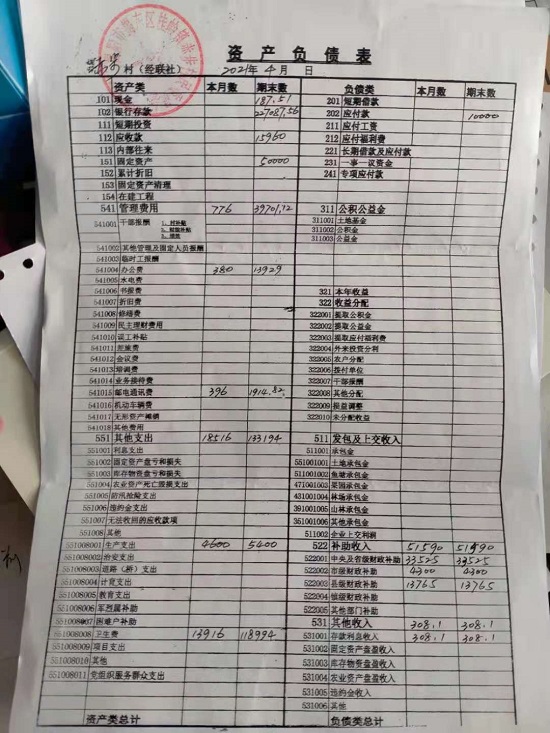 资产负债表
村（经联社） 2021年 4月 日
资产类 本月数 期末数 负债类 本月数 期末数
101 现金 187.51 201 短期借款
102 银行存款 227087.56 202 应付款 10000
111 短期投资 211 应付工资
112 应收款 15960 212 应付福利费
113 内部往来 221 长期借款及应付款
151 固定资产 50000 231 一事一议资金
152 累计折旧 241 专项应付款
153 固定资产清理
154 在建工程
541 管理费用 776 39701.12 311 公积公益金
541001 干部报酬 311001 土地基金
311002 公积金
311003 公益金
541002 其他管理及固定人员报酬
541003 临时工报酬
541004 办公费 380 13929
541005 水电费
541006 书报费 321 本年收益
541007 折旧费 322 收益分配
541008 修缮费 322001 提取公积金
541009 民主理财费用 322002 提取公益金
541010 误工补贴 322003 提取应付福利费
541011 差旅费 322004 外来投资分利
541012 会议费 322005 农户分配
541013 培训费 322006 拨付单位
541014 业务接待费 322007 干部报酬
541015 邮电通讯费 396 1914.82 322008 其他分配
541016 机动车辆费 322009 损益调整
541017 无形资产摊销 322010 未分配收益
541018 其他费用
551 其他支出 18516 133194 511 发包及上交收入
551001 利息支出 511001 承包金
551002 固定资产盘亏和损失 511001001 土地承包金
551003 库存物资盘亏和损失 511001002 鱼塘承包金
551004 农业资产死亡毁损支出 471001003 果园承包金
551005 防汛抢险支出 431001004 林场承包金
551006 违约金支出 391001005 山林承包金
551007 无法收回的应收款项 351001006 其他承包金
551008 其他 511002 企业上交利润
551008001 生产支出 4600 5400 522 补助收入 51590 51590
551008002 治安支出 522001 中央及省级财政补助 33525 33525
551008003 道路（桥）支出 522002 市级财政补助 4300 4300
551008004 计育支出 522003 县级财政补助 13765 13765
551008005 教育支出 522004 镇级财政补助
551008006 军烈属补助 522005 其他部门补助
551008007 困难户补助 531 其他收入 308.1 308.1
551008008 卫生费 13916 118994 531001 存款利息收入 308.1 308.1
551008009 项目支出 531002 固定资产盘盈收入
551008010 其他 531003 库存物资盘盈收入
551008011 党组织服务群众支出 531004 农业资产盘盈收入
531005 违约金收入
531006 其他
资产类总计 负债类总计